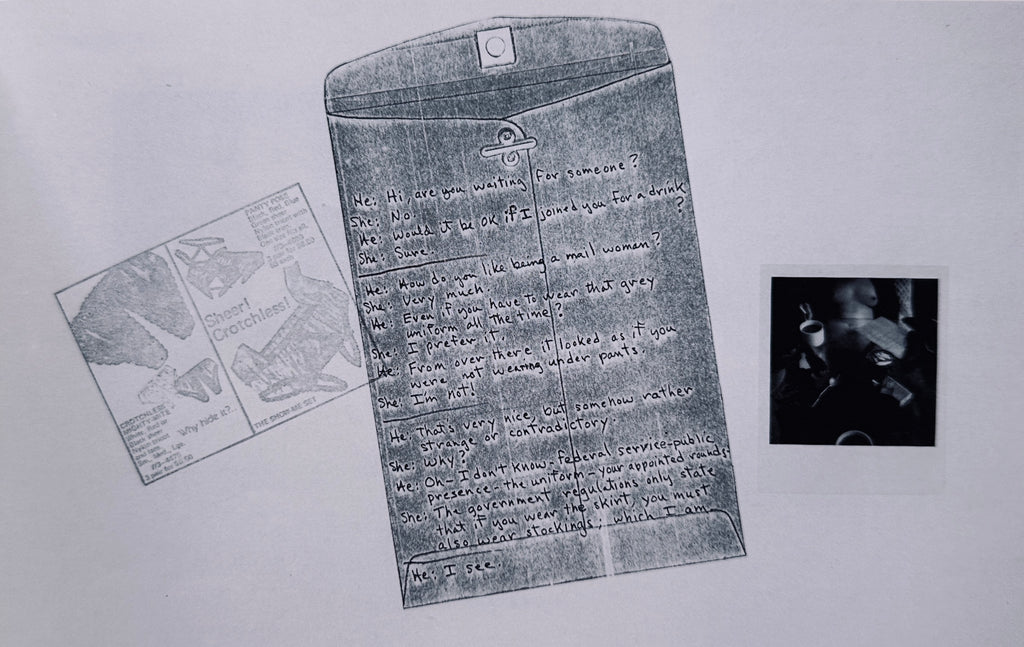 PANTY POSE
Sheer!
Crotchless!
CROTCHLESS
Why hide it?..
THE SHOW-ME SET
He: Hi, are you waiting for someone?
She: No.
He: Would it be OK if I joined you for a drink
?
She: Sure.
He: How do you like being a mail woman?
She: Very much
He: Even if you have to wear that grey
uniform all the time?
She: I prefer it.
He: From over there it looked as if you
were not wearing under pants.
She: I'm not!
He: That's very nice, but somehow rather
strange or contradictory.
She: Why?
He: Oh- I don't know- federal service-public
presence- the uniform- your appointed rounds.
She: The government regulations only state
that if you wear the skirt, you must
also wear stockings, which I am.
He: I see.